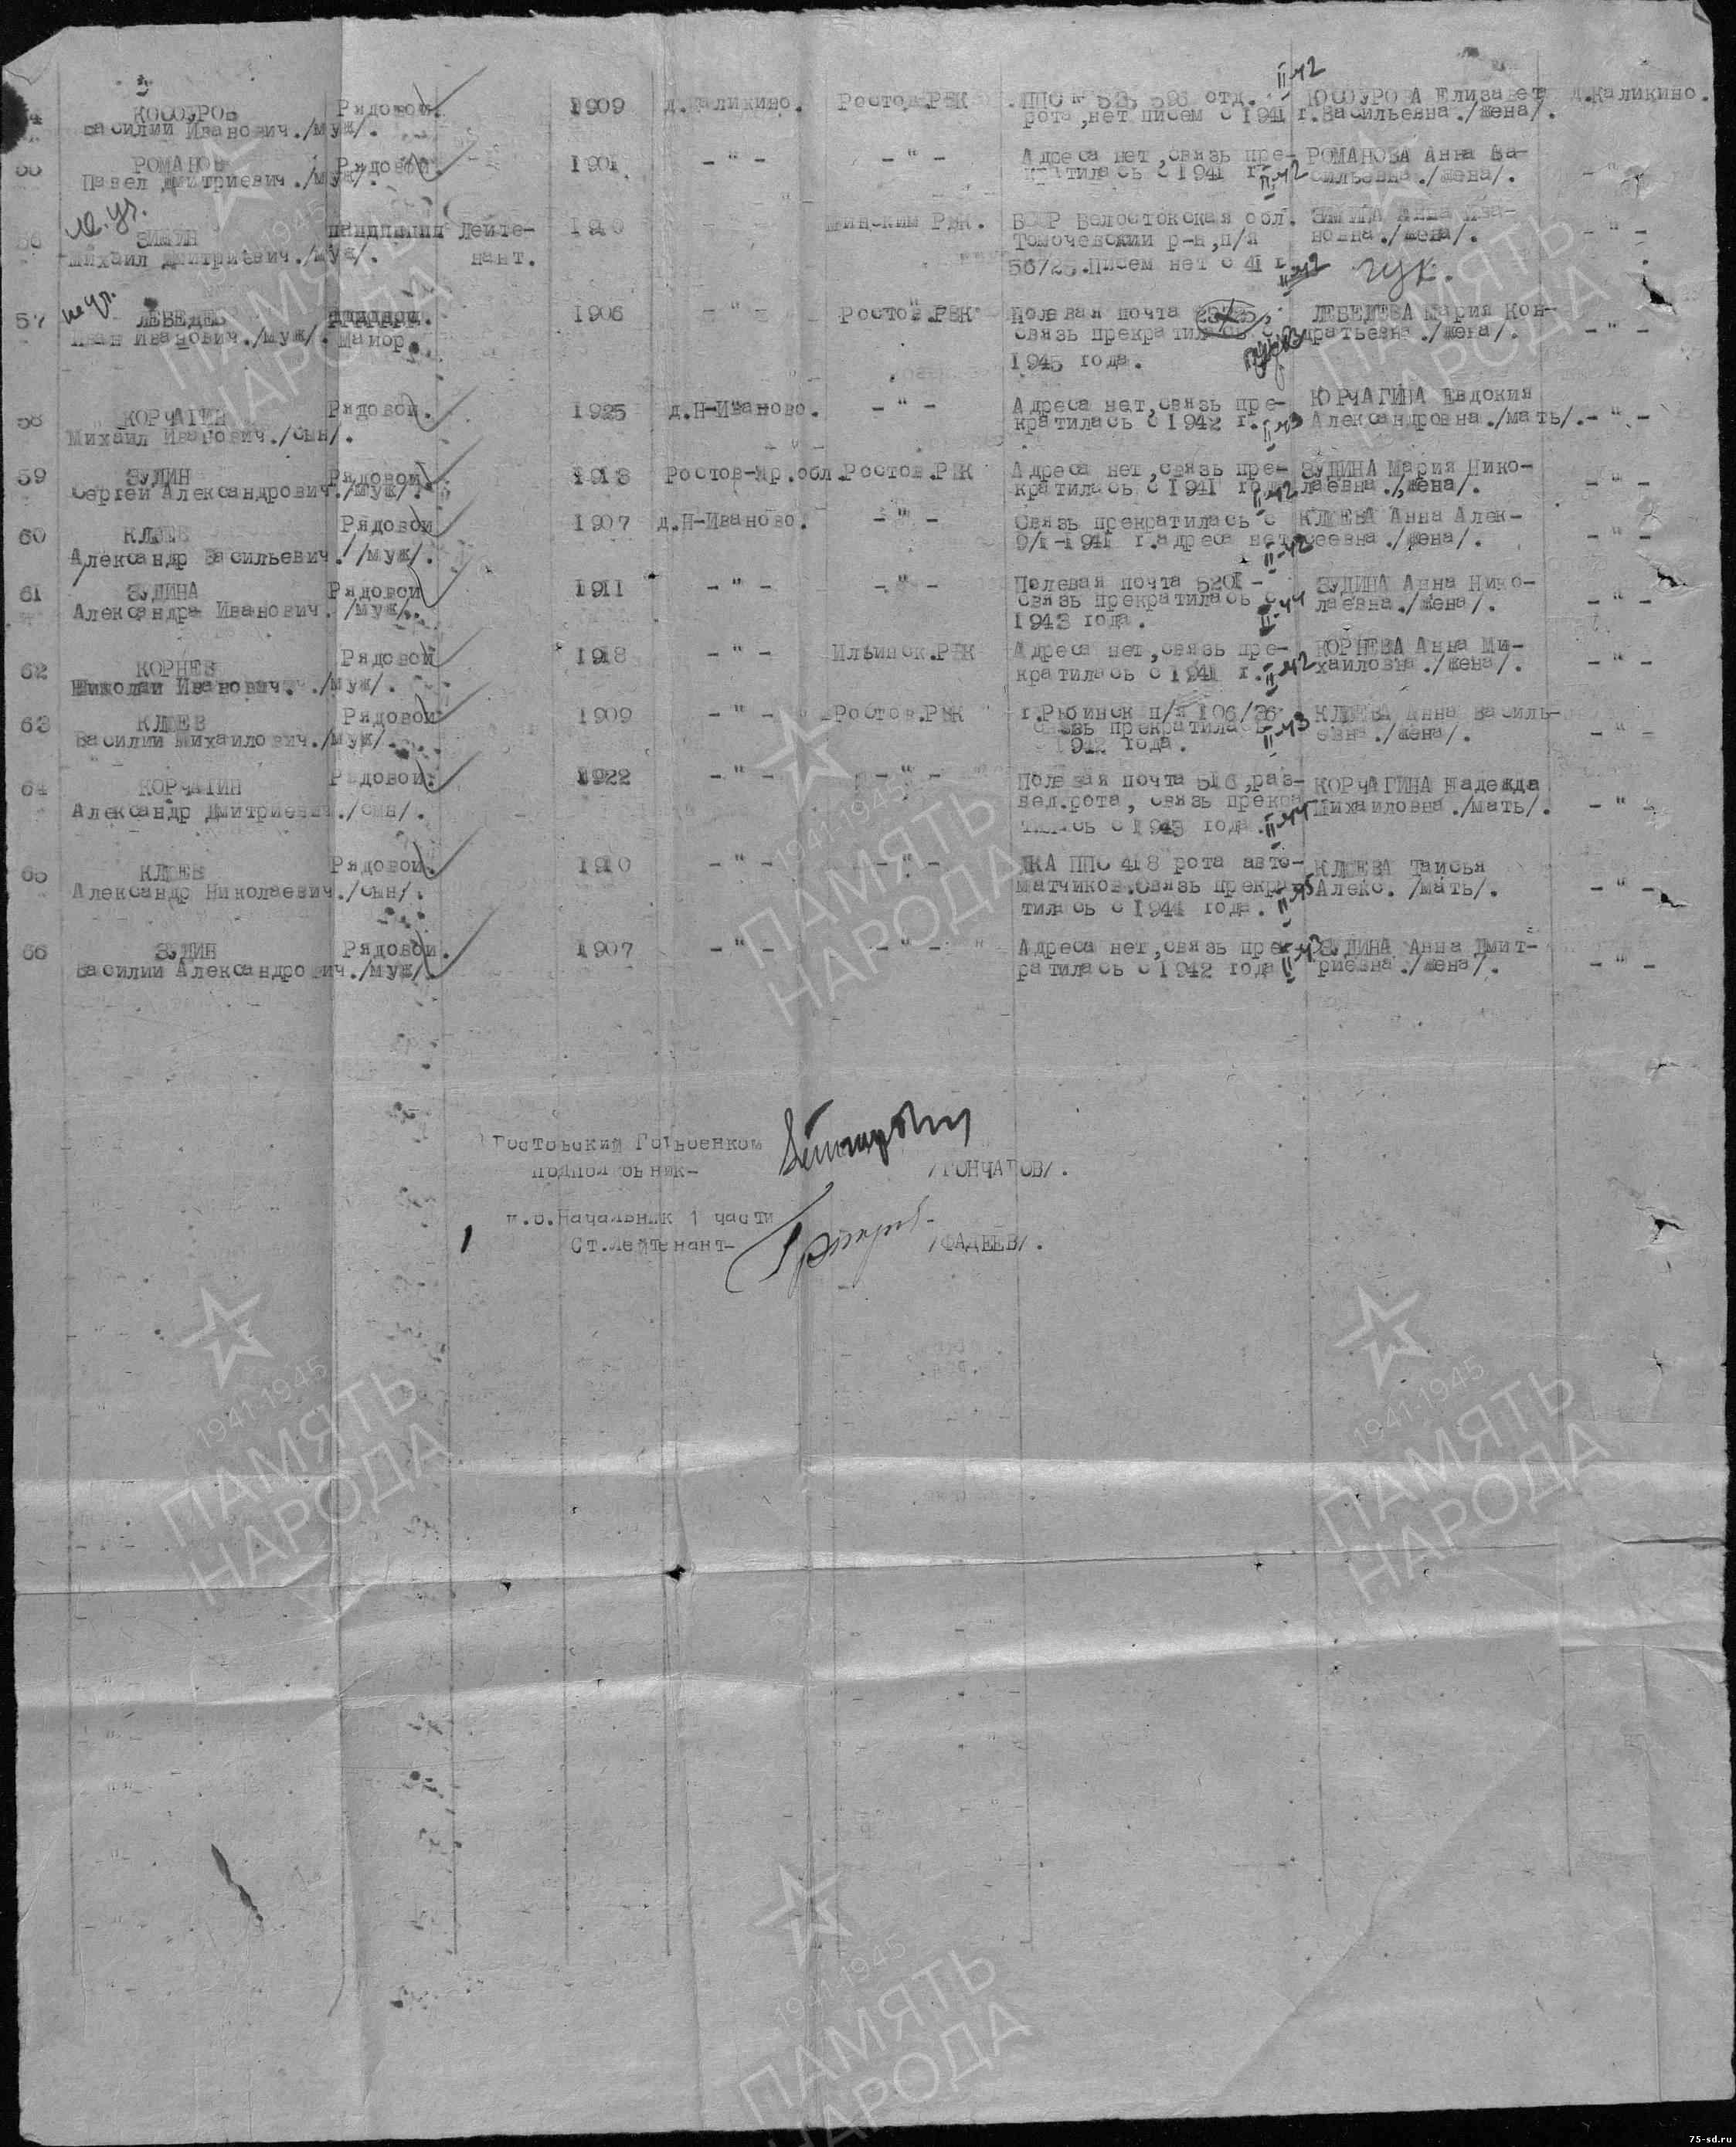 КОСОУРОВ Рядовой. 1909 д.Каликино. Ростов.РВК ППС № 53, 596 отд. КОСОУРОВА Елизавет д.Каликино.
Василий Иванович./муж/. рота,нет писем с 1941 г. Васильевна./жена/.
II-42
55 РОМАНОВ Рядовой. 1901 -"- -"- Адреса нет,связь пре- РОМАНОВА Анна Ва- -"-
Павел Дмитриевич./муж/. кратилась с 1941 г. II-42 сильевна./жена/.
56 ЗИМИН Лейте- 1910 - - РВК. Белостокская обл. ЗИМИНА Анна Ива- -"-
Михаил Дмитриевич./муж/. нант. р-н,п/я новна./жена/.
56/25.Писем нет с 41 г. II-42 гук.
не уч.
57 ЛЕБЕДЕВ 1906 -"- Ростов.РВК Полевая почта ЛЕБЕДЕВА Мария Кон- -"-
Иван Иванович./муж/. Майор. связь прекратилась с дратьевна./жена/.
1945 года.
58 КОРЧАГИН Рядовой. 1925 д.Н-Иваново. -"- Адреса нет,связь пре- КОРЧАГИНА Евдокия
Михаил Иванович./сын/. кратилась с 1942 г. II-43 Александровна./мать/. -"-
59 ЗУДИН Рядовой 1913 Ростов-Яр.обл. Ростов.РВК Адреса нет,связь пре- ЗУДИНА Мария Нико- -"-
Сергей Александрович./муж/. кратилась с 1941 года II-42 лаевна./жена/.
60 КЛЮЕВ Рядовой 1907 д.Н-Иваново. -"- Связь прекратилась с КЛЮЕВА Анна Алек- -"-
Александр Васильевич./муж/. 9/I-1941 г.адреса нет II-42 сеевна./жена/.
61 ЗУДИНА Рядовой 1911 -"- -"- Полевая почта 5201- ЗУДИНА Анна Нико- -"-
Александра Иванович. /муж/. связь прекратилась с II-44 лаевна./жена/.
1943 года.
62 КОРНЕВ Рядовой 1918 -"- Ильинск.РВК Адреса нет,связь пре- КОРНЕВА Анна Ми- -"-
Николай Иванович. /муж/. кратилась с 1941 г. II-42 хайловна./жена/.
63 КЛЮЕВ Рядовой 1909 -"- Ростов.РВК г.Рыбинск п/я 106/26 КЛЮЕВА Анна Василь- -"-
Василий Михайлович./муж/. связь прекратилась II-43 евна./жена/.
1942 года.
64 КОРЧАГИН Рядовой. 1922 -"- -"- Полевая почта 516,раз- КОРЧАГИНА Надежда
Александр Дмитриевич./сын/. вед.рота, связь прекра- Михайловна./мать/. -"-
тилась с 1943 года. II-44
65 КЛЮЕВ Рядовой. 1910 -"- -"- ДКА ППС 418 рота авто- КЛЮЕВА Таисья
Александр Николаевич./сын/. матчиков.связь прекра- Алекс. /мать/. -"-
тилась с 1944 года. II-45
66 ЗУДИН Рядовой. 1907 -"- -"- Адреса нет,связь прек- ЗУДИНА Анна Дмит-
Василий Александрович./муж/. ратилась с 1942 года II-43 риевна./жена/. -"-
Ростовский Горвоенком
подполковник- /ГОНЧАРОВ/.
и.о.Начальник 1 части
Ст.Лейтенант- /ФАДЕЕВ/.
1941-1945
ПАМЯТЬ
НАРОДА
75-sd.ru